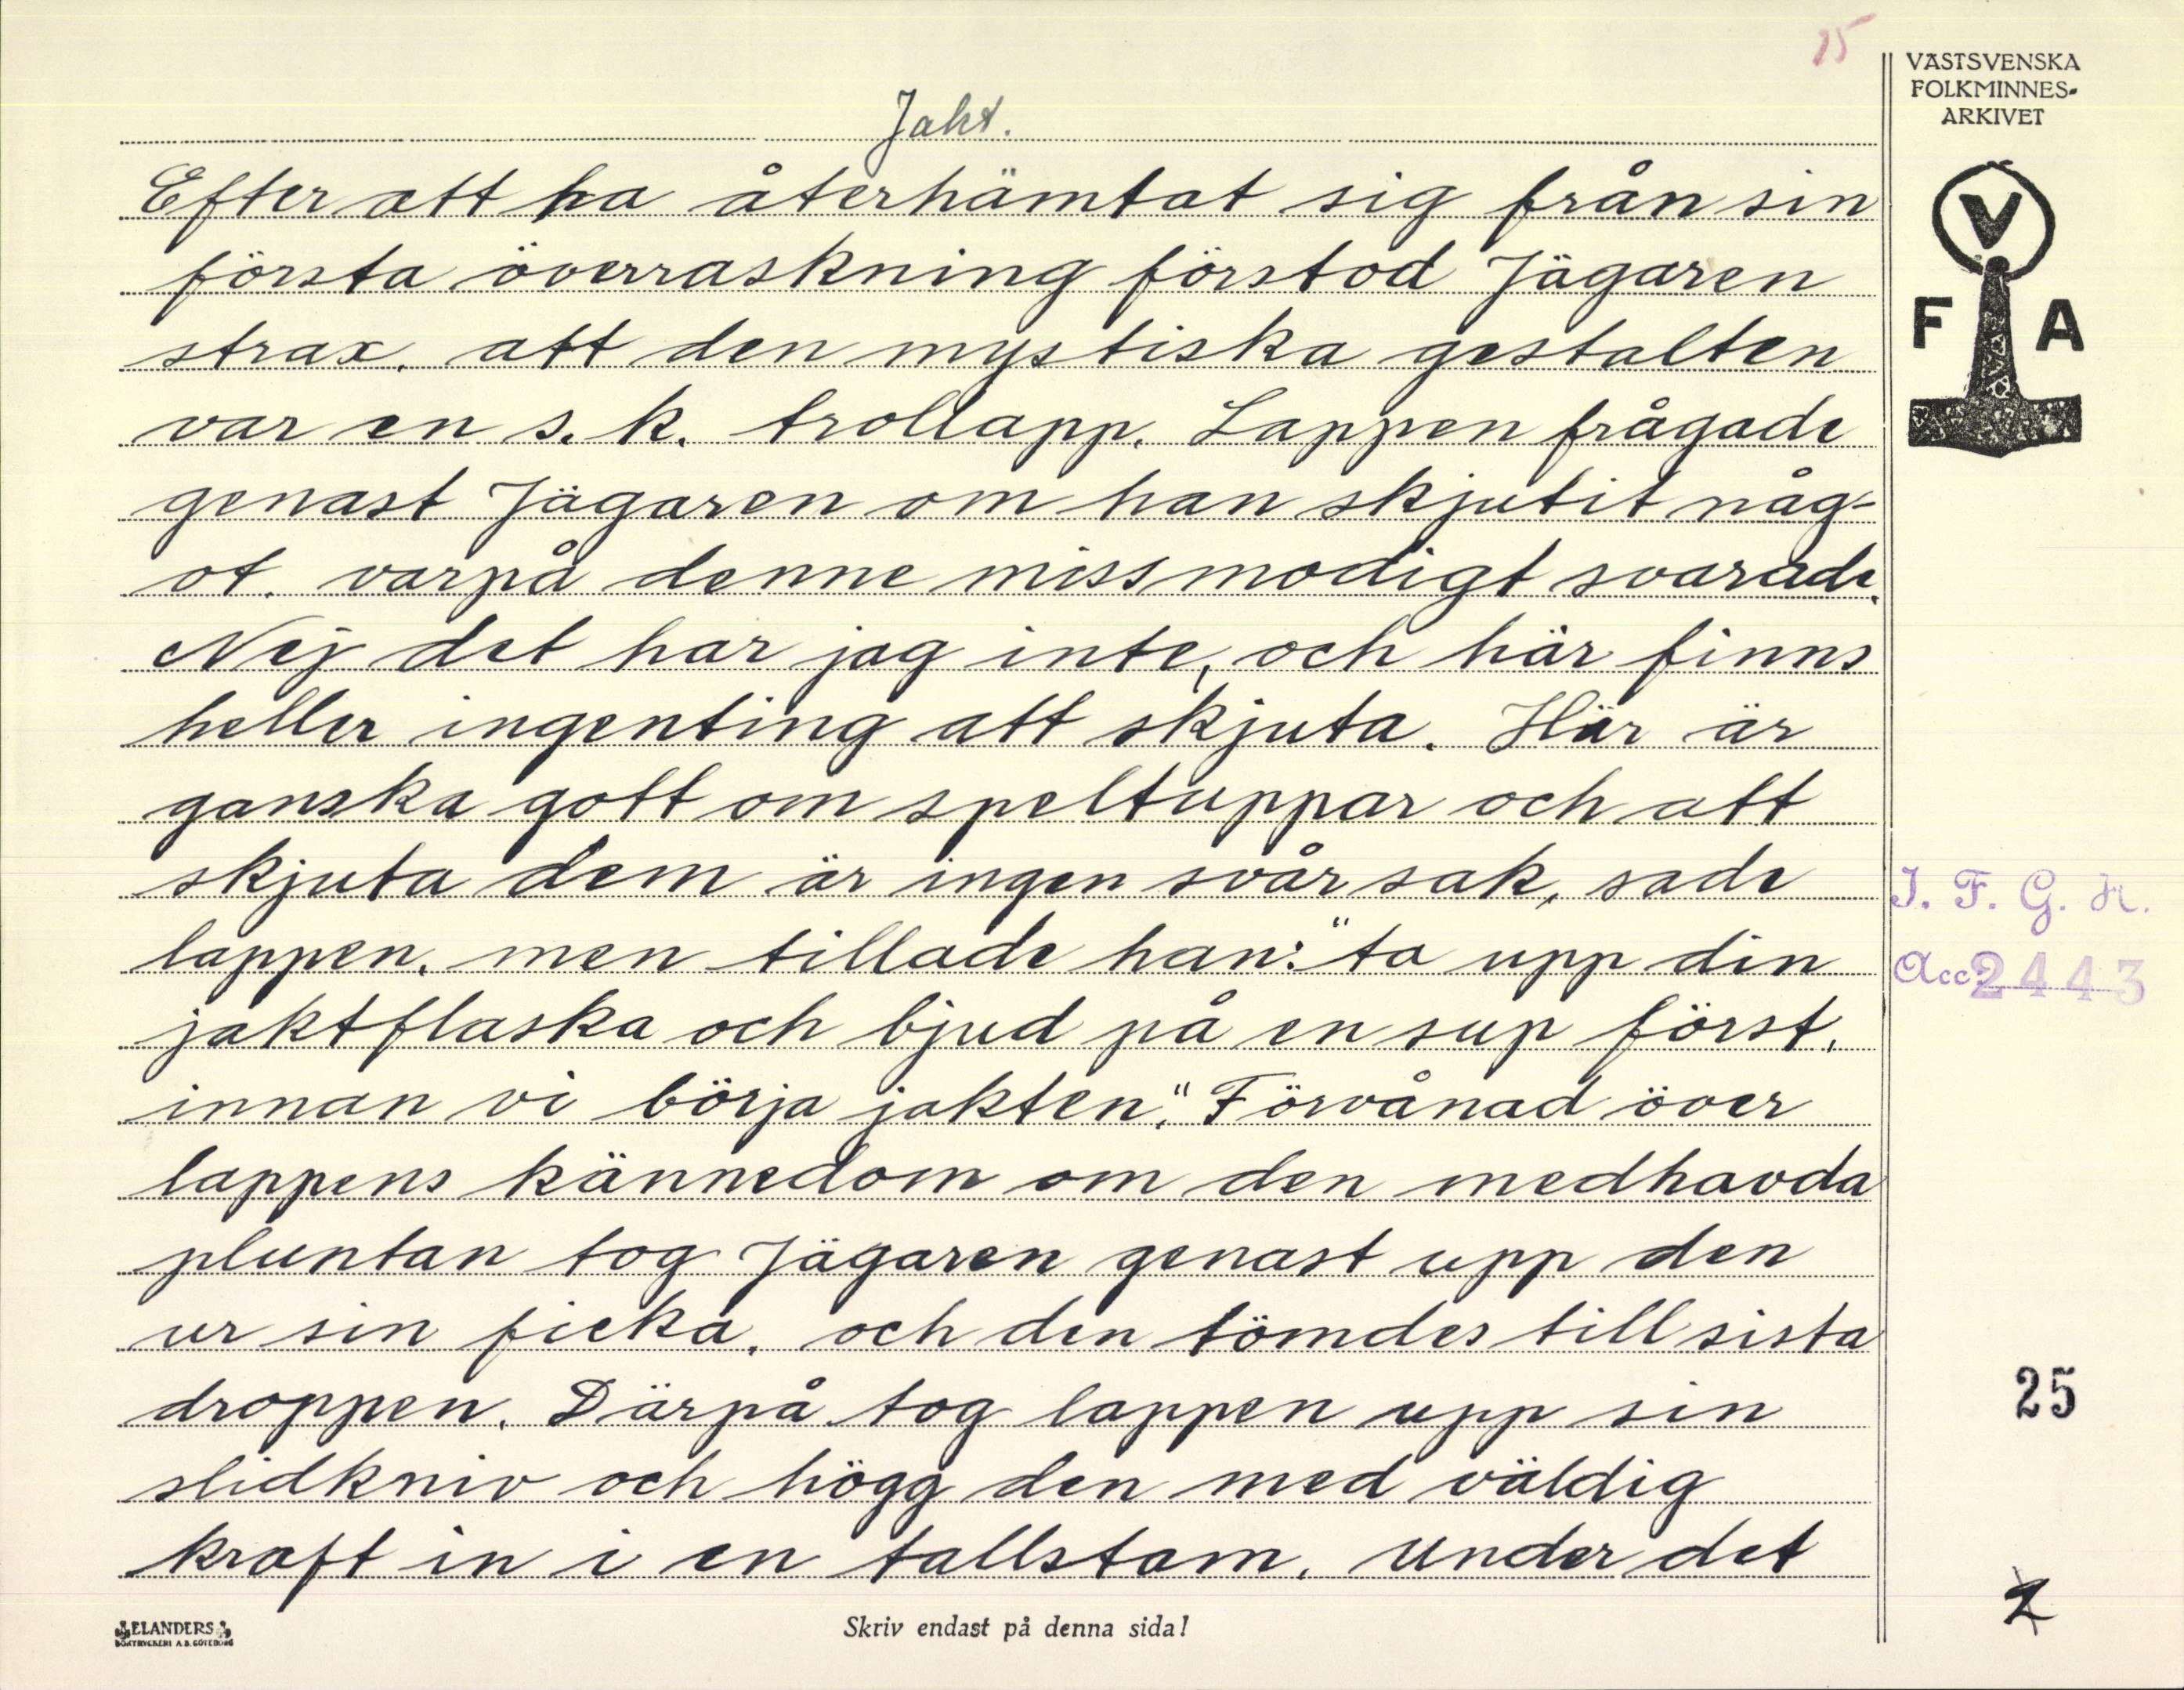 25
VÄSTSVENSKA
FOLKMINNES-
ARKIVET
Jakt.
V
F A
Efter att ha återhämtat sig från sin
första överraskning förstod Jägaren
strax, att den mystiska gestalten
var en s. k. trollapp. Lappen frågade
genast Jägaren om han skjutit någ-
ot. varpå denne missmodigt svarade.
Nej det har jag inte, och här finns
heller ingenting att skjuta. Här är
ganska gott om speltuppar och att
skjuta dem är ingen svår sak, sade
lappen, men tillade han: "ta upp din
jaktflaska och bjud på en sup först,
innan vi börja jakten". Förvånad över
lappens kännedom om den medhavda
pluntan tog Jägaren genast upp den
ur sin ficka, och den tömdes till sista
droppen. Därpå tog lappen upp sin
slidkniv och högg den med väldig
kraft in i en tallstam. under det
I. F. G. H.
Acc. 2443
25
2
ELANDERS
BOKTRYCKERI A.B. GÖTEBORG
Skriv endast på denna sida!